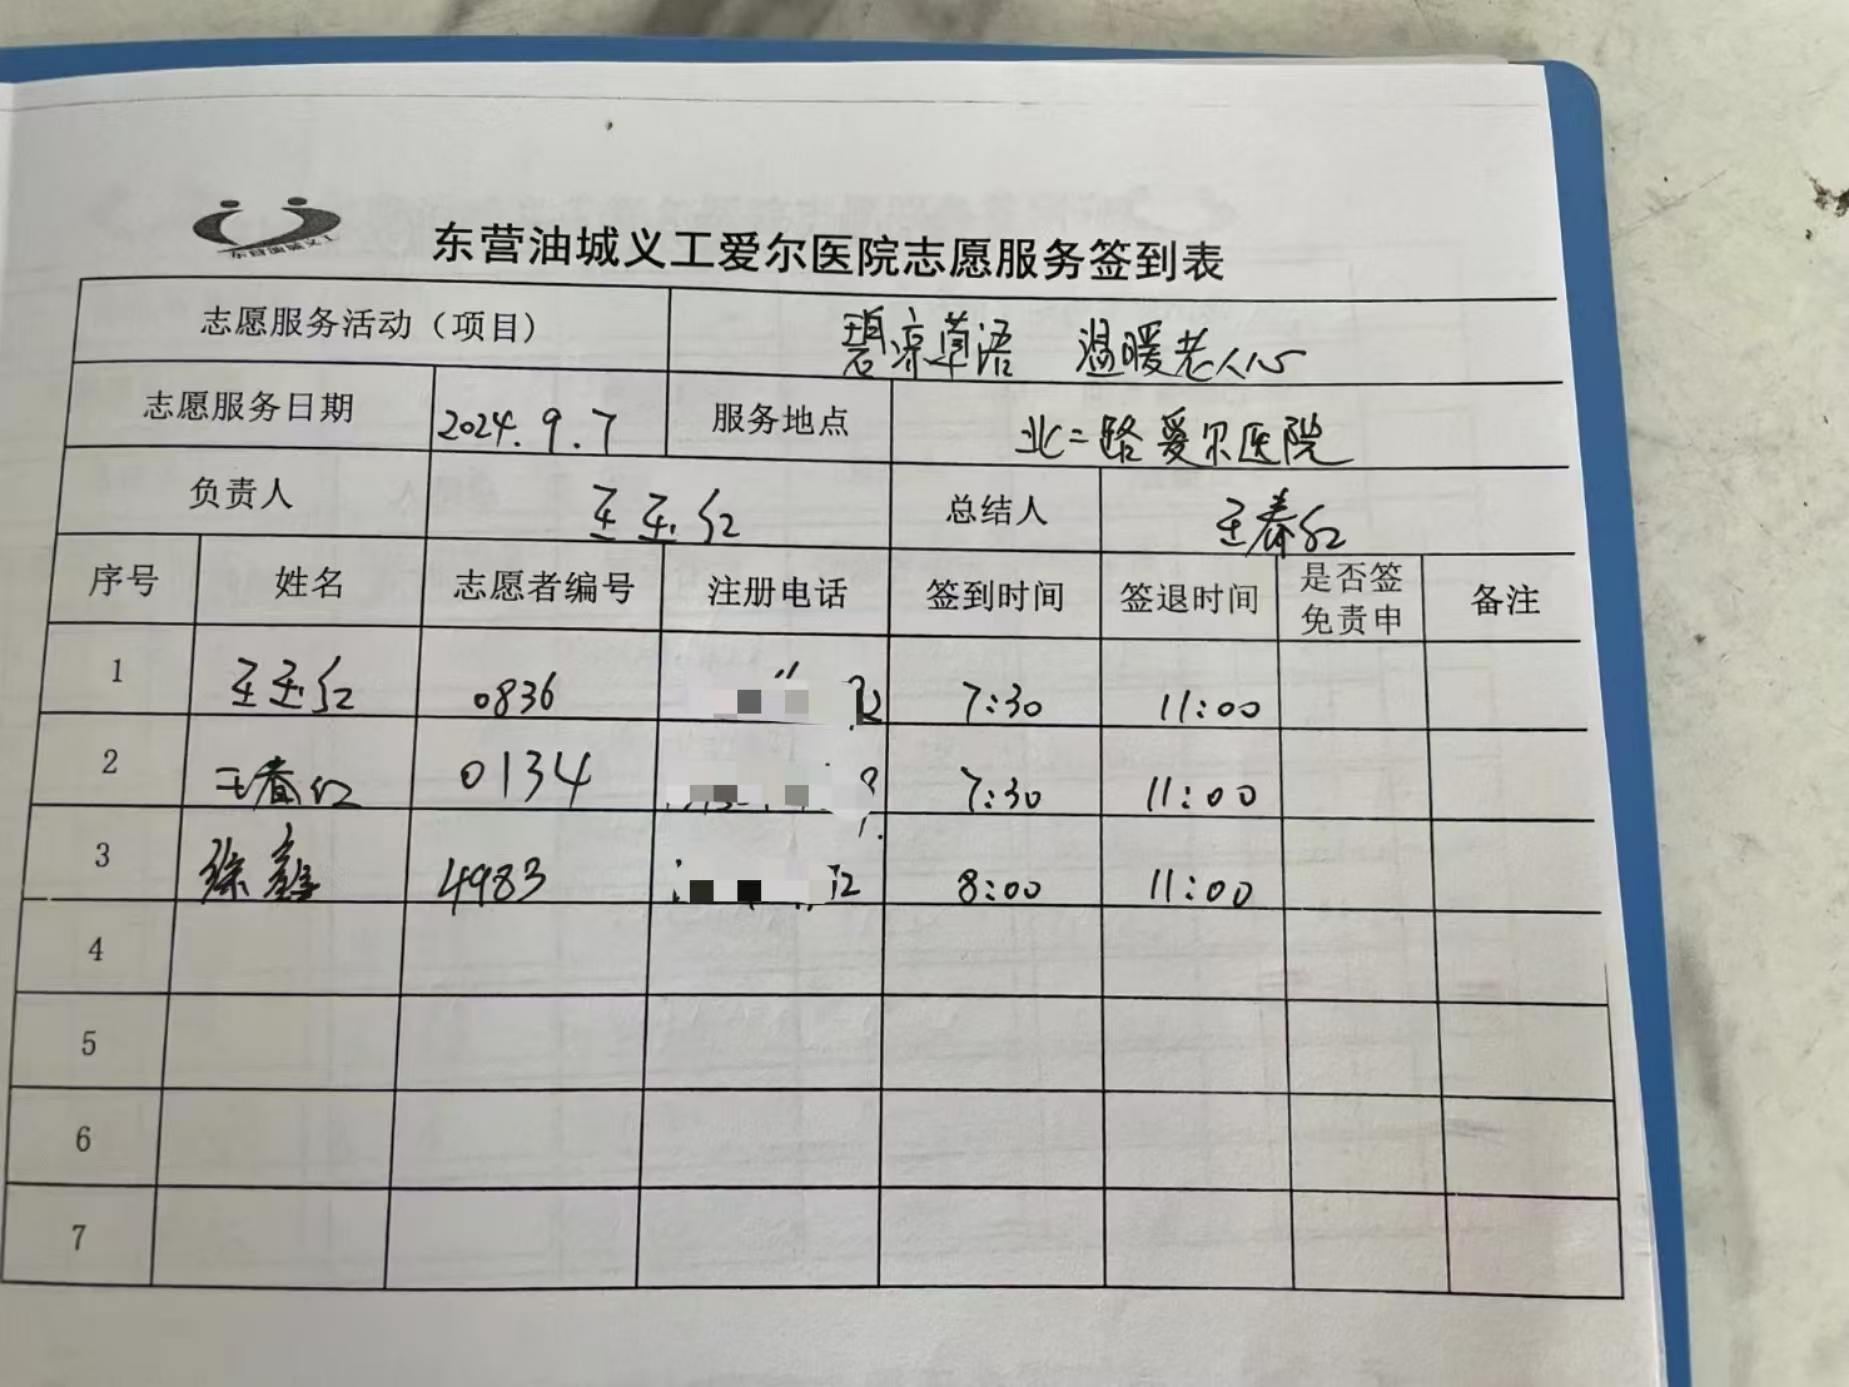 东营油城义工
东营油城义工爱尔医院志愿服务签到表
志愿服务活动（项目） 碧凉草语 温暖老人心
志愿服务日期 2024.9.7 服务地点 北二路爱尔医院
负责人 王玉红 总结人 王春红
序号 姓名 志愿者编号 注册电话 签到时间 签退时间 是否签免责申 备注
1 王玉红 0836 7:30 11:00
2 王春红 0134 7:30 11:00
3 徐 4983 8:00 11:00
4
5
6
7